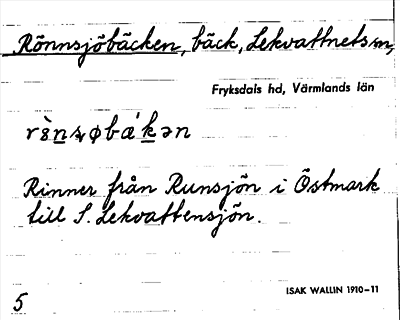 Rönnsjöbäcken, bäck, Lekvattnets sn,
Fryksdals hd, Värmlands län
Rinner från Runsjön i Östmark
till S. Lekvattensjön.
ISAK WALLIN 1910–11
5